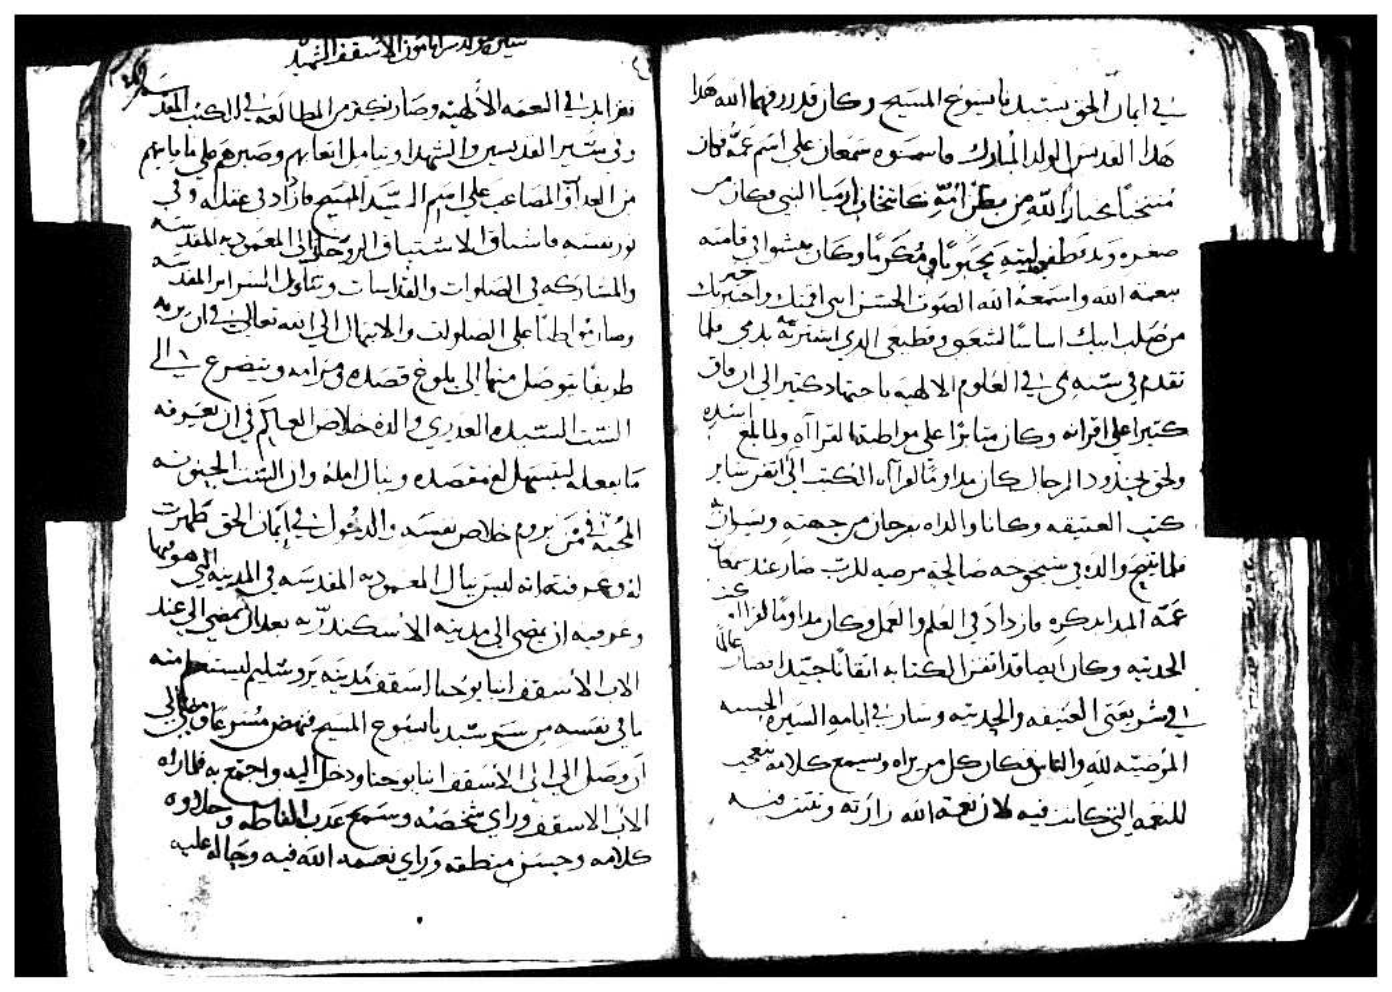 في ايمان الحق بسيدنا يسوع المسيح وكان قد رزقهما الله هذا
هذا القديس الولد المبارك فاسموه سمعان على اسم عمه فكان
منتخبًا مختارًا لله من بطن امه كانتخاب ارميا النبي وكان من
صغره وبدء طفوليته محبوبًا ومكرمًا وكان ينشوا في قامته
بنعمة الله واسمعه الله الصوت الحسن اني اقمتك واخترتك
من صلب ابيك اساسًا لشعبي وقطيعي الذي اشتريته بدمي فلما
تقدم في سنه في العلوم الالهيه باجتهاد كثير الى ان فاق
كثيرا على اقرانه وكان مثابرًا على مواظبة القراآه ولما بلغ اشده
ولحق بحدود الرجال كان مداومًا لقرااه الكتب الى اتقن ساير
كتب العتيقه وكانا والداه يفرحان من جهته ويسران
فلما تنيح والده في شيخوخه صالحة مرضيه للرب صار عند سمعان
عمه المدا بذكره فازداد في العلم والعمل وكان مداومًا لقرااة كتب
الحديثه وكان ايضا قد اتقن الكتابه اتقانًا جيدا فصار عالمًا
في شريعتى العتيقه والحديثه وسار في ايامه السيره الحسنه
المرضيه لله والناس فكان كل من يراه ويسمع كلامه يتعجب
للنعمه التي كانت فيه لان نعمة الله زارته
الاسقف الشهيد
في النعمه الالهيه وصار يكثر من المطالعه في الكتب المقدسه
وفي سير القديسين والشهدا ويتامل اتعابهم وصبرهم على ما نابهم
من العداب والمصاعب على اسم السيد المسيح فازداد في عقله وفي
نور نفسه فاشتاق الاشتياق الروحاني الى المعموديه المقدسه
والمشاركه في الصلوات والقداسات وتناول السراير المقدسه
وصار مواظبًا على الصلوات والابتهال الى الله تعالى في ان يريه
طريقًا يتوصل منها الى بلوغ قصده ومرامه ويتضرع الى
الست السيده العذري والدة خلاص العالم في ان تعرفه
ما يفعله ليتسهل له مقصده وينال امله وان الست الحنونه
المحبه في من يروم خلاص نفسه والدخول في ايمان الحق ظهرت
له وعرفته انه ليس ينال المعموديه المقدسه في المدينه التي هو فيها
وعرفته ان يمضي الى مدينه الاسكندريه بعد ان يمضي الى عند
الاب الاسقف انبا يوحنا اسقف مدينه يروشليم ليستعلم منه
ما في نفسه من سر سيدنا يسوع المسيح فنهض مسرعًا
ان وصل الى الاب الاسقف انبا يوحنا ودخل اليه واجتمع به فلما راه
الاب الاسقف وراي شخصه وسمع عذب الفاظه وحلاوه
كلامه وحسن منطقه وراي نعمه الله فيه وحاله عليه